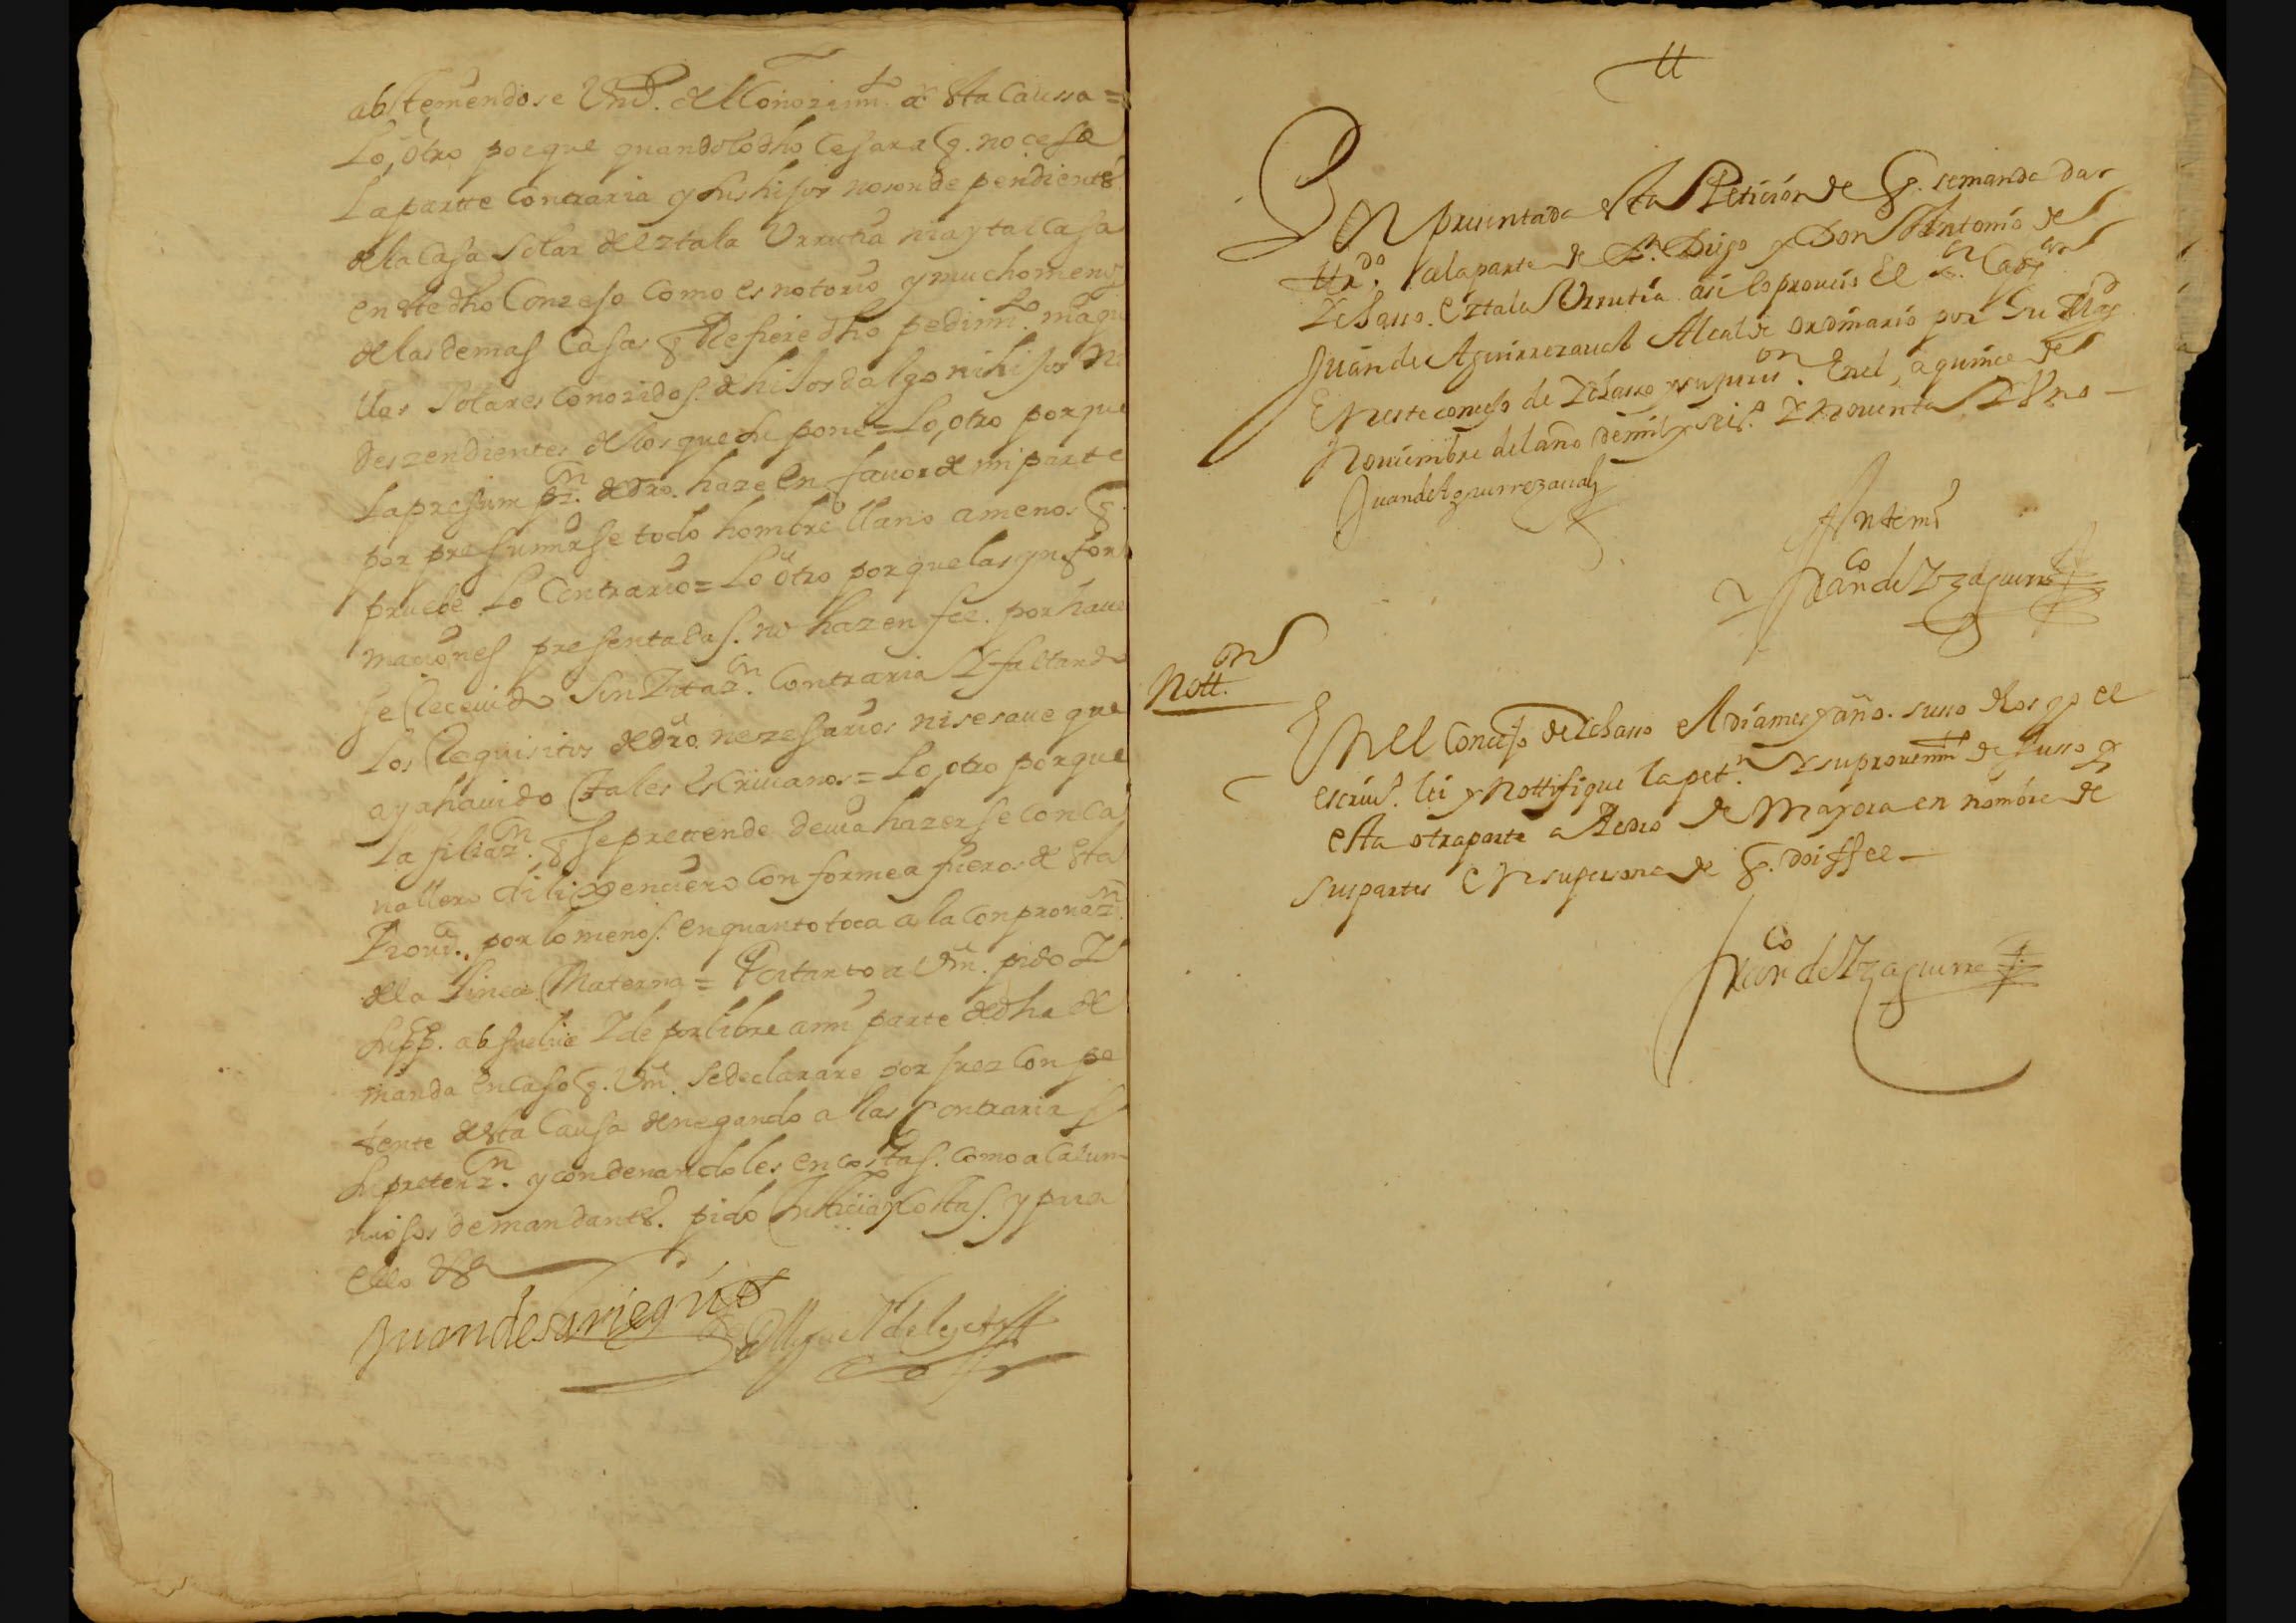 absteniendose Vmd. del Conozimto. de sta Caussa =
Lo, otro porque quando lo dho Cesara q. no cesa
La parte Contraria y sus hijos no son dependientes
de la Casa Solar de Eztala Urrutia ni ay tal Casa
en ste dho Conzejo Como es notorio y mucho menos
de las demas Casas q Refiere dho pedimto.
llas Solares Conozidos de hijos dalgo ni hijos ni
deszendientes de los que supone = Lo, otro porque
La presumpzn. de dro. haze en favor de mi parte
por pressumirse todo hombre llano a menos q.
pruebe Lo Contrario = Lo otro porque las ynfor
maciones presentadas. no hazen fee. por haver
se Recevido Sin Zitazn. Contraria Y faltando
Los Requisitos de dro. nezesarios ni se save que
aya havido tales escrivanos = Lo, otro porque
La filiazn. q se pretende devia hazerse con Ca
vallero dilixenciero conforme a fueros de sta
Provª. por lo menos. en quanto toca a la conprovazn.
de la Linea Materna = Por tanto a Vm. pido Y
supp. absuelva Y de por libre a mi parte de dha de
manda en Caso q. Vm. se declarare por juez Conpe
tente de sta Causa denegando a las Contrarias
su pretenzn. y condenandoles en costas. como a calum
niosos demandantes. pido Justicia y Costas. y para
ello &ª
Juan de Miguel de
En presentada esta Peticion de q. se manda dar
trdo. a la parte de Dn. Diego y Don Antonio de
Echarro. Eztala Urrutia asi lo proveio El Sr. Capn.
Juan de Aguirrezaval Alcalde ordinario por Su Magd
En este concejo de Echarro y su jurion. En el, a quince de
Noviembre del año de mil y seiss. Y Noventa Y Uno –
Juan de Aguirrezaval
Ante mi
Franco de Yzaguirre
Notton.
En el Concejo de Echarro el dia mes y año. suso dhos yo el
escrivº. lei y Nottifique la petn. Y su proveimto de suso y
esta otra parte a Pedro de Mayora en nombre de
sus partes En su persona de q. doi ffee –
Franco de Yzaguirre